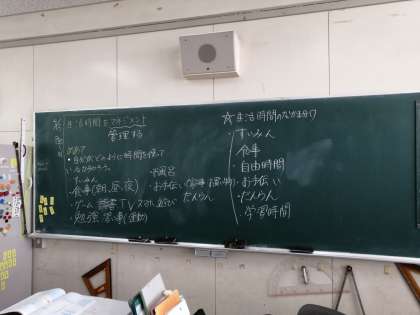 生活時間をマネジメント
管理する
めあて
・自分がどのように時間を使って
いるか
すいみん
・お風呂
・食事(朝、昼、夜)
・お手伝い
・ゲーム 読書 TV スマホ 遊び
だんらん
・勉強
☆生活時間のなかま分け
・すいみん
食事
・自由時間
・お手伝い
・だんらん
学習時間